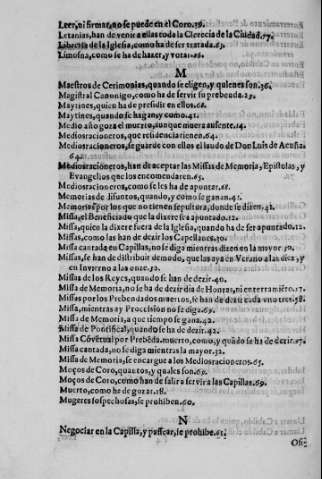 Leer, ni firmar, no se puede en el Coro. 38.
Letanias, han de venir a ellas toda la Clerecia de la Ciudad. 77.
Libreria de la Iglesia, como ha de ser tratada. 63.
Limosna, como se ha de hazer, y votar.
M
Maestros de Cerimonias, quando se eligen, y quienes son. 36.
Magistral Canonigo, como ha de servir su prebenda. 23.
Maytines, quien ha de presidir en ellos. 68.
Maytines, quando se hagan, y como. 41.
Medio año goza el muerto, aunque muera ausente. 14.
Mediosracioneros, que residencia tienen. 64.
Mediosracioneros, se guarde con ellos el laudo de Don Luis de Acuña.
64.
Mediosracioneros, han de aceptar las Missas de Memoria, Epistolas, y
Evangelios que les encomendaren. 65.
Mediosracioneros, como se les ha de apuntar. 68.
Memorias de Difuntos, quando, y como se ganan. 42.
Memorias por los que no tienen sepultura, donde se dizen. 42.
Missa, el Beneficiado que la dixere sea apuntado. 12.
Missa, quien la dixere fuera de la Iglesia, quando ha de ser apuntado. 12.
Missas, como las han de dezir los Capellanes. 70.
Missa cantada en Capillas, no se diga mientras dizen la mayor. 70.
Missas, se han de distribuir de modo, que las aya en Verano a las diez, y
en Invierno a las onze. 50.
Missas de los Reyes, quando se han de dezir. 40.
Missa de Memoria, no se ha de dezir dia de Honras, ni enterramiēto. 17.
Missas por los Prebendados muertos, se han de dezir cada vno tres. 58.
Missa, mientras ay Procession no se diga. 69.
Missa de Memoria, a que tiempo se gana. 42.
Missa de Pontifical, quando se ha de dezir. 42.
Missa Cōvētual por Prebēda. muerto, como, y quādo se ha de dezir. 17.
Missa cantada, no se diga mientras la mayor. 32.
Missa de Memoria, se encargue a los Mediosracioneros. 65.
Moços de Coro, quantos, y quales son. 69.
Moços de Coro, como han de salir a servir a las Capillas. 69.
Muerto, como ha de gozar. 18.
Mugeres sospechosas, se prohiben. 60.
N
Negociar en la Capilla, y passear, se prohibe. 61.